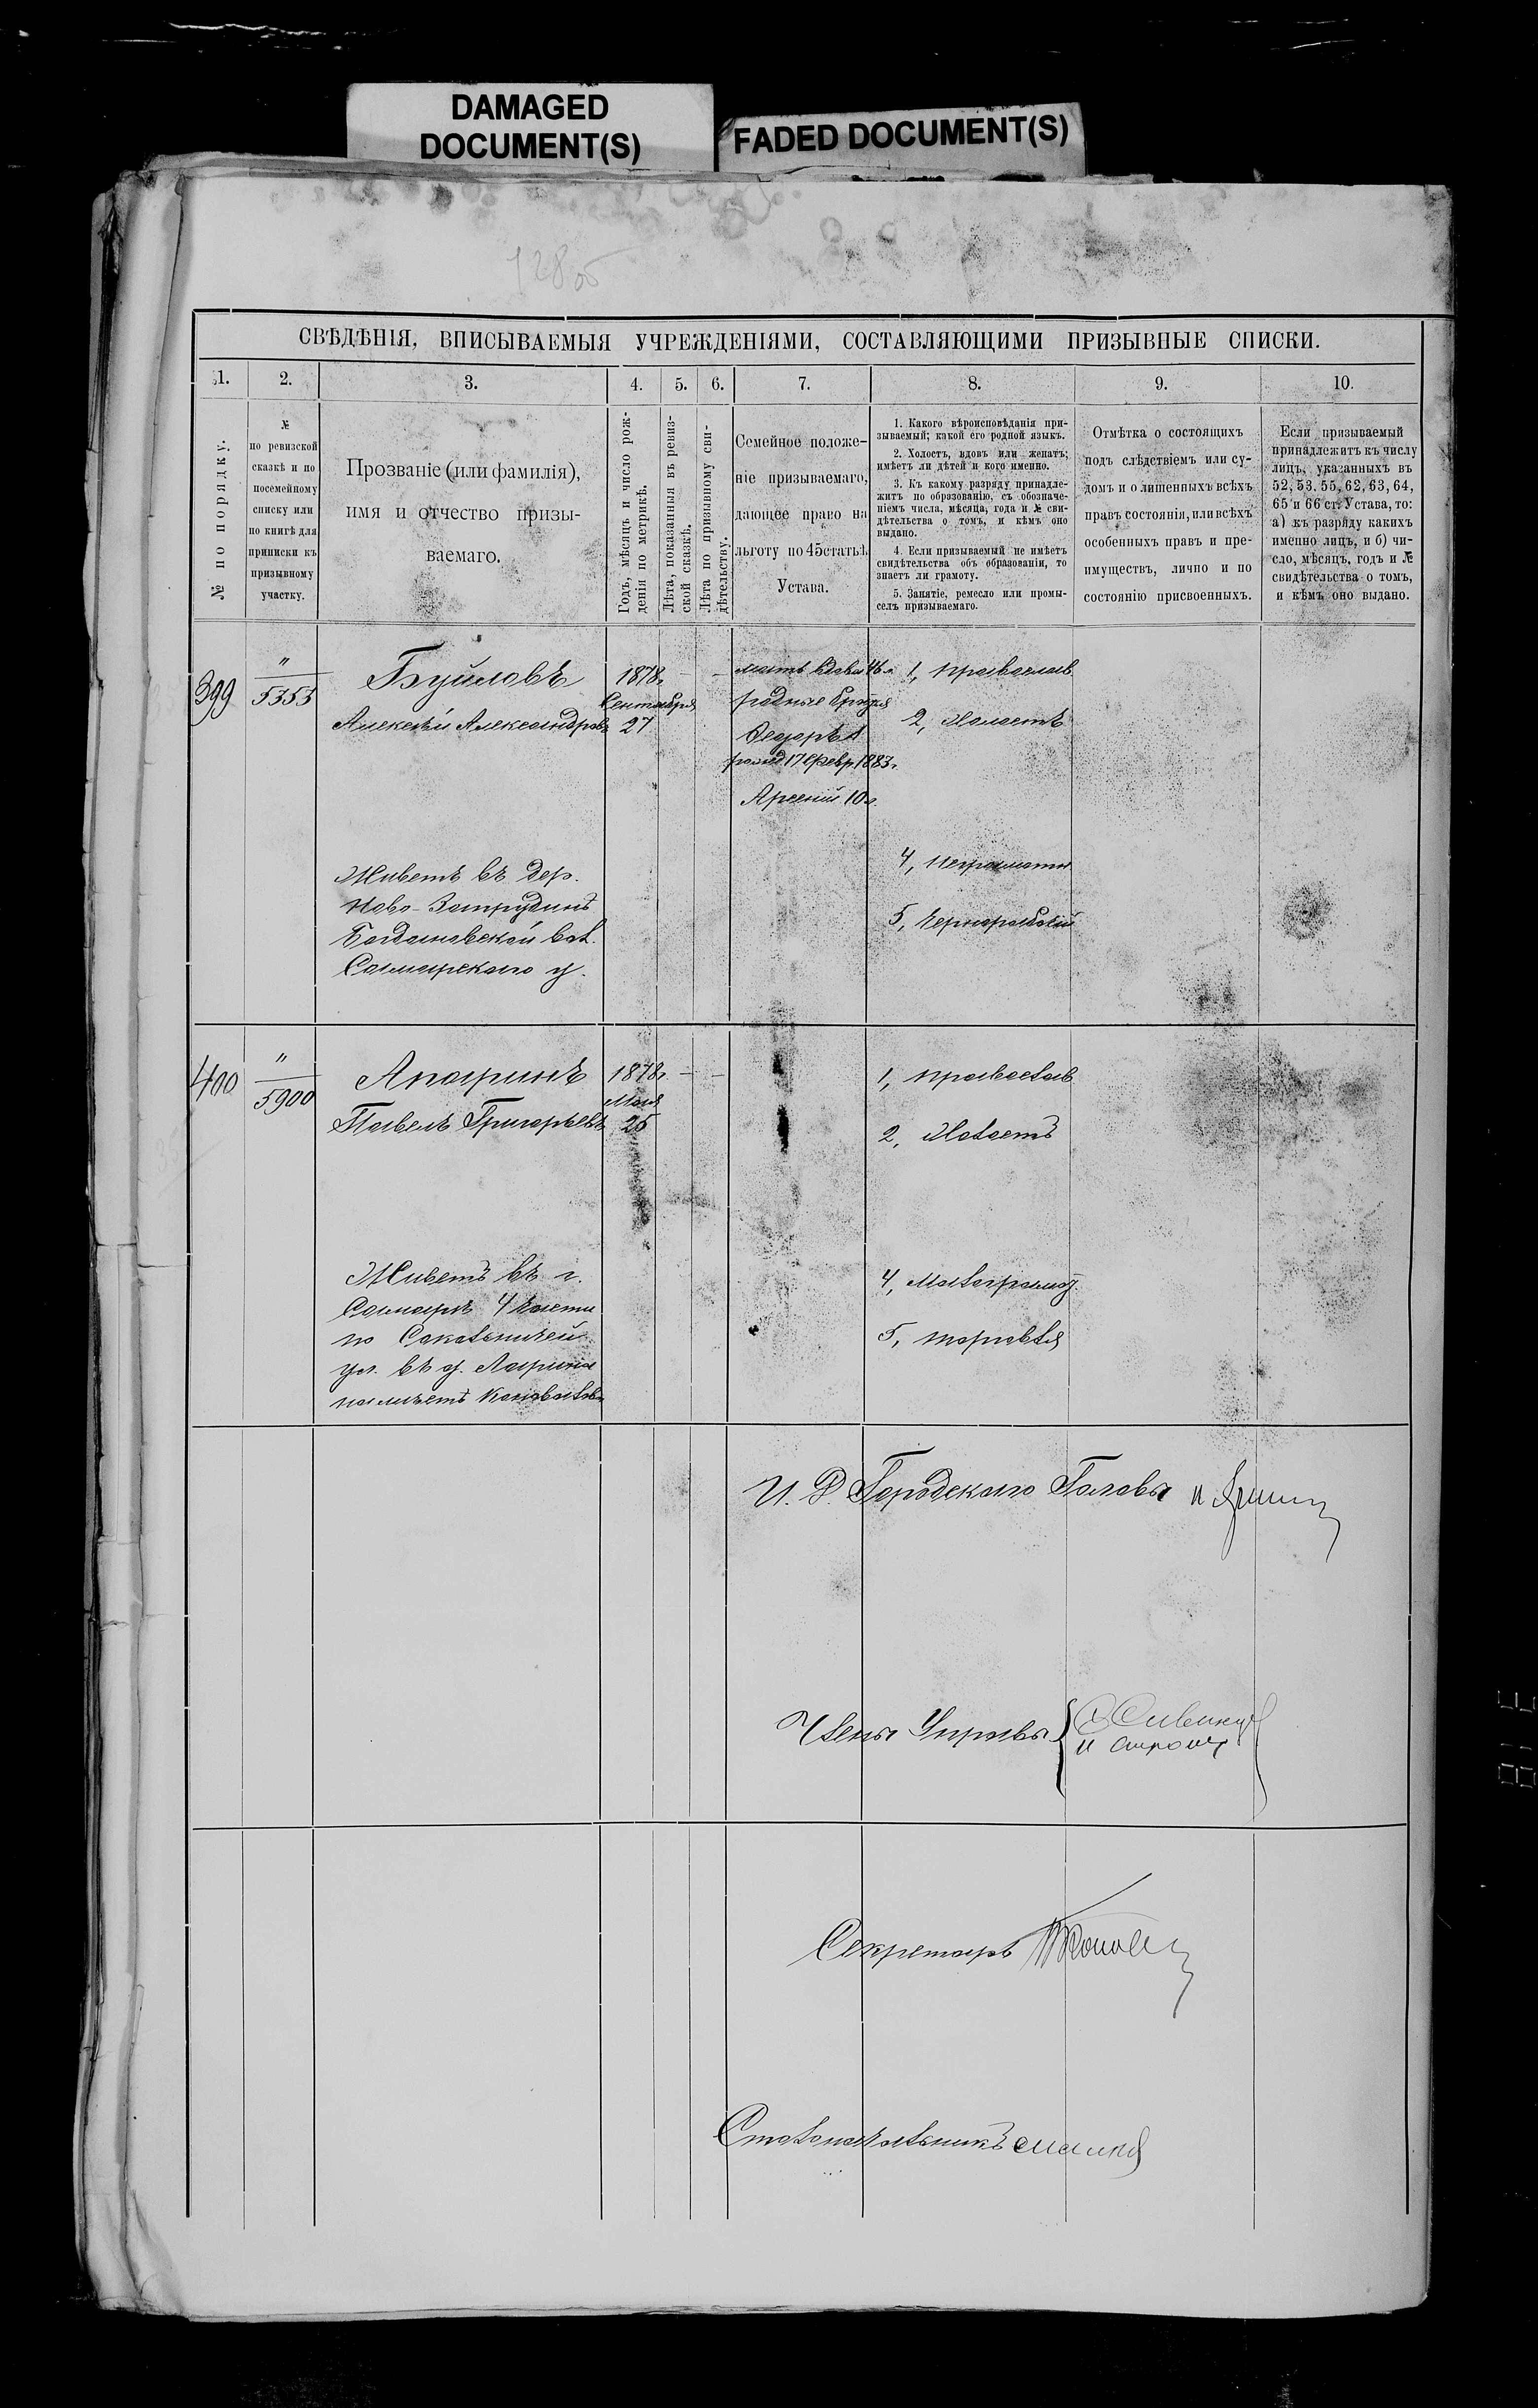 DAMAGED
DOCUMENT(S)
FADED DOCUMENT(S)
СВѢДѢНІЯ, ВПИСЫВАЕМЫЯ УЧРЕЖДЕНІЯМИ, СОСТАВЛЯЮЩИМИ ПРИЗЫВНЫЕ СПИСКИ.
1.
2.
3.
4.
5.
6.
7.
8.
9.
10.
№ по порядку.
№
по ревизской
сказкѣ и по
посемейному
списку или
по книгѣ для
приписки къ
призывному
участку.
Прозваніе (или фамилія),
имя и отчество призы-
ваемаго.
Годъ, мѣсяцъ и число рож-
денія по метрикѣ.
Лѣта, показанныя въ ревиз-
ской сказкѣ.
Лѣта по призывному сви-
дѣтельству.
Семейное положе-
ніе призываемаго,
дающее право на
льготу по 45 статьѣ
Устава.
1. Какого вѣроисповѣданія при-
зываемый; какой его родной языкъ.
2. Холостъ, вдовъ или женатъ;
имѣетъ ли дѣтей и кого именно.
3. Къ какому разряду принадле-
житъ по образованію, съ обозначе-
ніемъ числа, мѣсяца, года и № сви-
дѣтельства о томъ, и кѣмъ оно
выдано.
4. Если призываемый не имѣетъ
свидѣтельства объ образованіи, то
знаетъ ли грамоту.
5. Занятіе, ремесло или промы-
селъ призываемаго.
Отмѣтка о состоящихъ
подъ слѣдствіемъ или су-
домъ и о лишенныхъ всѣхъ
правъ состоянія, или всѣхъ
особенныхъ правъ и пре-
имуществъ, лично и по
состоянію присвоенныхъ.
Если призываемый
принадлежитъ къ числу
лицъ, указанныхъ въ
52, 53. 55, 62, 63, 64,
65 и 66 ст. Устава, то:
а) къ разряду какихъ
именно лицъ, и б) чи-
сло, мѣсяцъ, годъ и №
свидѣтельства о томъ,
и кѣмъ оно выдано.
399
"
5353
Буйловъ
Алексѣй Александровъ
Живетъ въ дер.
Ново-Запрудинѣ
Богдановской вол.
Самарскаго у.
1878г.
Сентября
27
мать вдова 46л.
родные братья
Ѳедоръ
рожд 17 февр. 1883г.
Арсеній 10л.
1, православ
2, Холостъ
4, неграматн
5, чернорабочій
400
"
5900
Апаринъ
Павелъ Григорьевъ
Живетъ въ г.
Самарѣ 4 части
по Сокольничей
ул. въ д.
1878г.
Мая
25
1, православ
2, Холостъ
4, Малограмот.
5, торговля
И. Д. Городскаго Головы
Члены Управы
Секретарь
Столоначальникъ